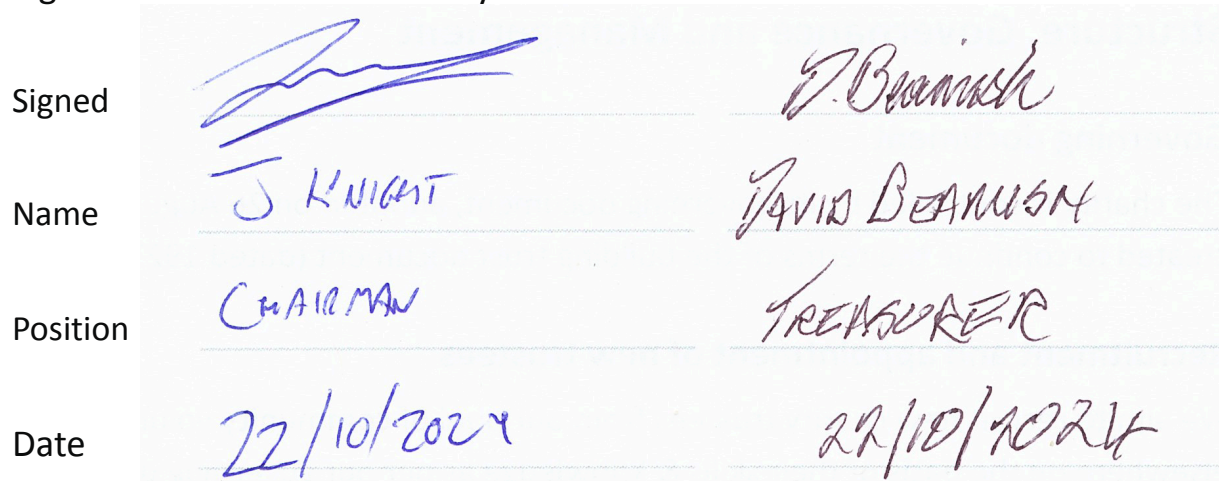 Signed D. Beamish
Name J KNIGHT DAVID BEAMISH
Position CHAIRMAN TREASURER
Date 22/10/2024 22/10/2024